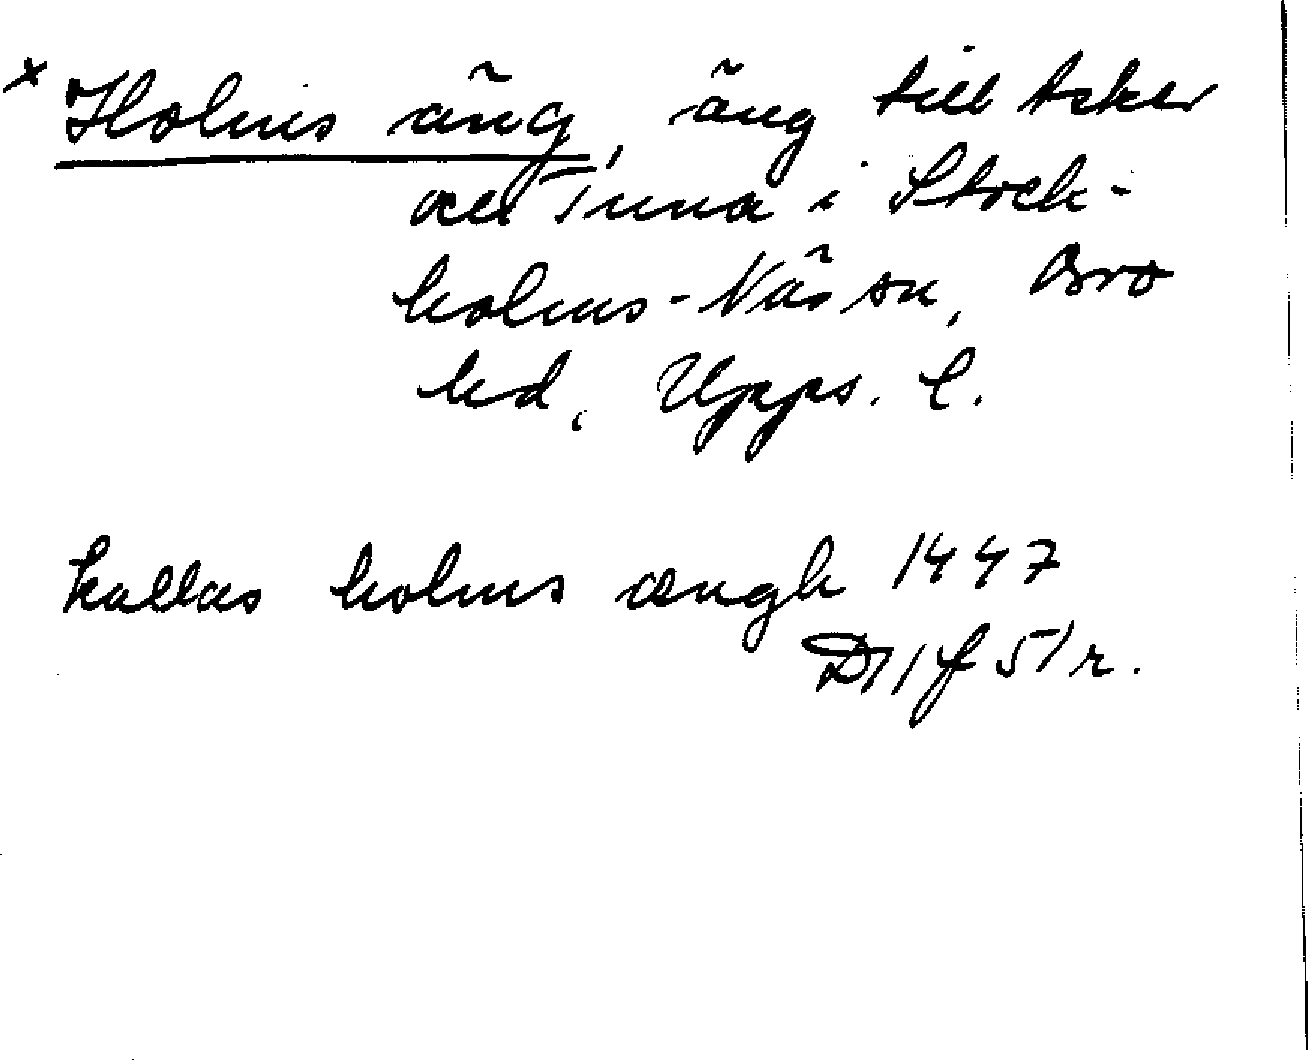 x Holms äng, äng till Asker
och Tuna i Stock-
holms-Näs sn, Bro
hd, Upps. l.
kallas holms ængh 1447
D11 f 51 r.